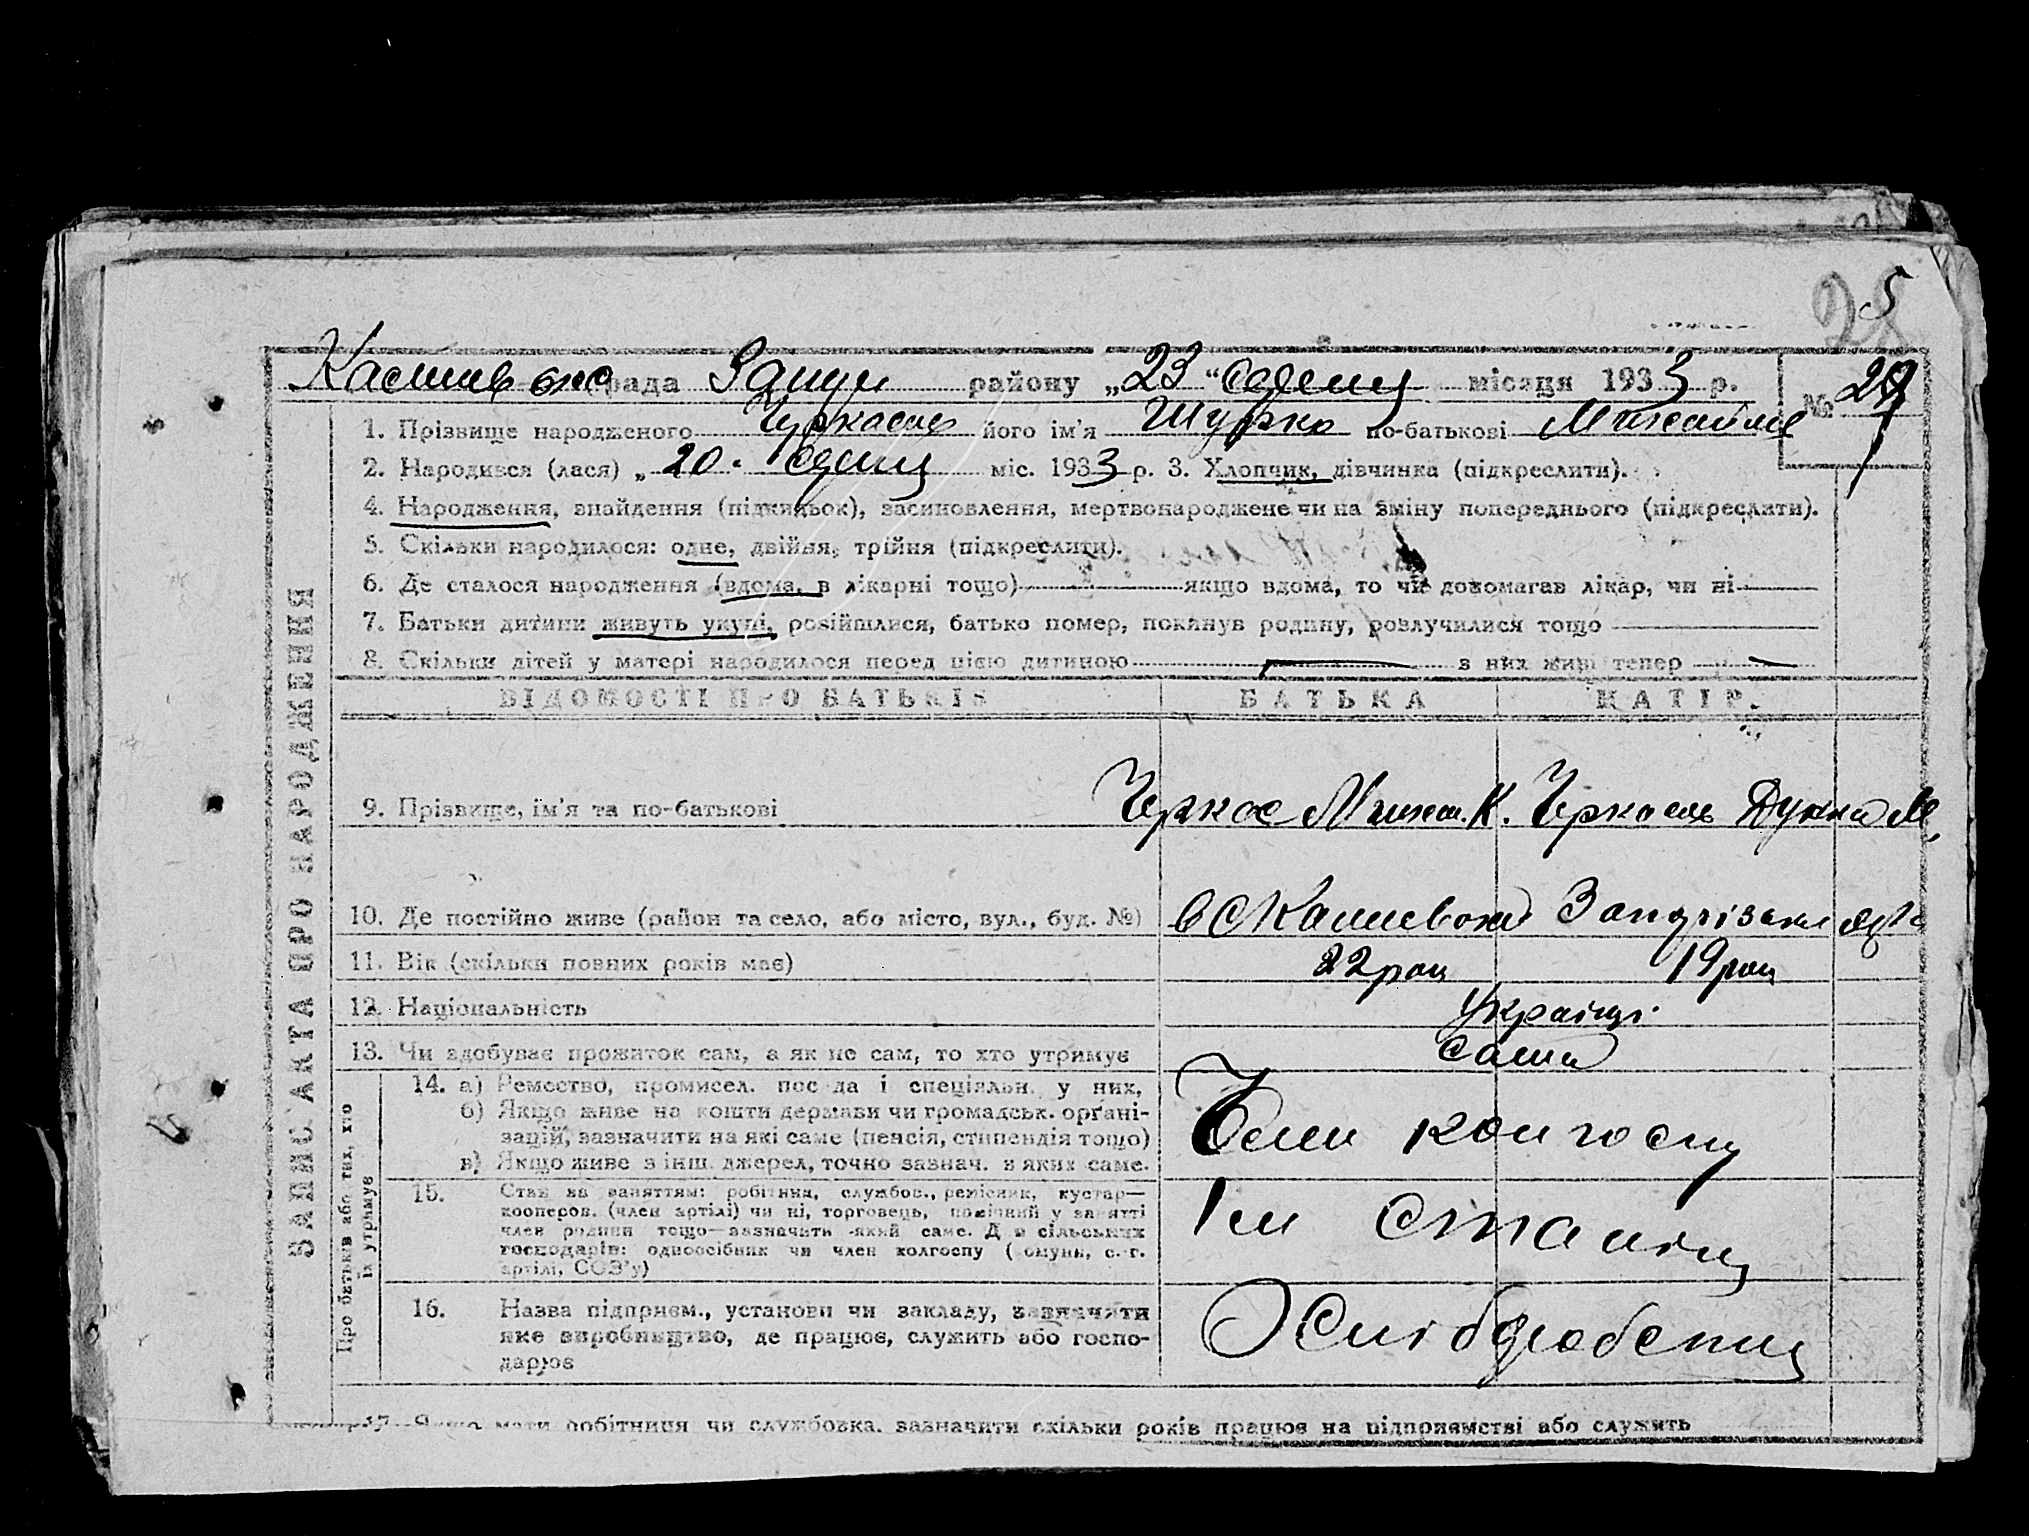 25
рада району „23“ місяця 1933 р. №
1. Прізвище народженого його ім'я Шурко по-батькові
2. Народився (лася) „20. міс. 1933 р. 3. Хлопчик, дівчинка (підкреслити).
4. Народження, знайдення (підкидьок), засиновлення, мертвонароджене чи на зміну попереднього (підкреслити).
5. Скільки народилося: одне, двійня, трійня (підкреслити).
6. Де сталося народження (вдома, в лікарні тощо) якщо вдома, то чи допомагав лікар, чи ні
7. Батьки дитини живуть укупі, розійшлися, батько помер, покинув родину, розлучилися тощо
8. Скільки дітей у матері народилося перед цією дитиною з них живі тепер
ЗАПИС АКТА ПРО НАРОДЖЕННЯ
ВІДОМОСТІ ПРО БАТЬКІВ БАТЬКА МАТІР
9. Прізвище, ім'я та по-батькові Черкас К. М.
10. Де постійно живе (район та село, або місто, вул., буд. №)
11. Вік (скільки повних років має) 22 роц 19 роц
12. Національність Українці
13. Чи здобуває прожиток сам, а як не сам, то хто утримує сами
Про батьків або тих, хто їх утримує
14. а) Ремество, промисел, посада і спеціяльн. у них, Член колгоспу
б) Якщо живе на кошти держави чи громадськ. органі-
зацій, зазначити на які саме (пенсія, стипендія тощо)
в) Якщо живе з інш. джерел, точно зазнач. з яких саме.
15. Стан за заняттям: робітник, службов., ремісник, кустар— Ім Сталіна
кооперов. (член артілі) чи ні, торговець, помічний у занятті
член родини тощо—зазначити який саме. Для сільських
господарів: одноосібник чи член колгоспу (комуни, с.-г.
артілі, СОЗ'у)
16. Назва підприєм., установи чи закладу, зазначити Хліборобство
яке виробництво, де працює, служить або госпо-
дарює
17. Якщо мати робітниця чи службовка, зазначити скільки років працює на підприємстві або служить